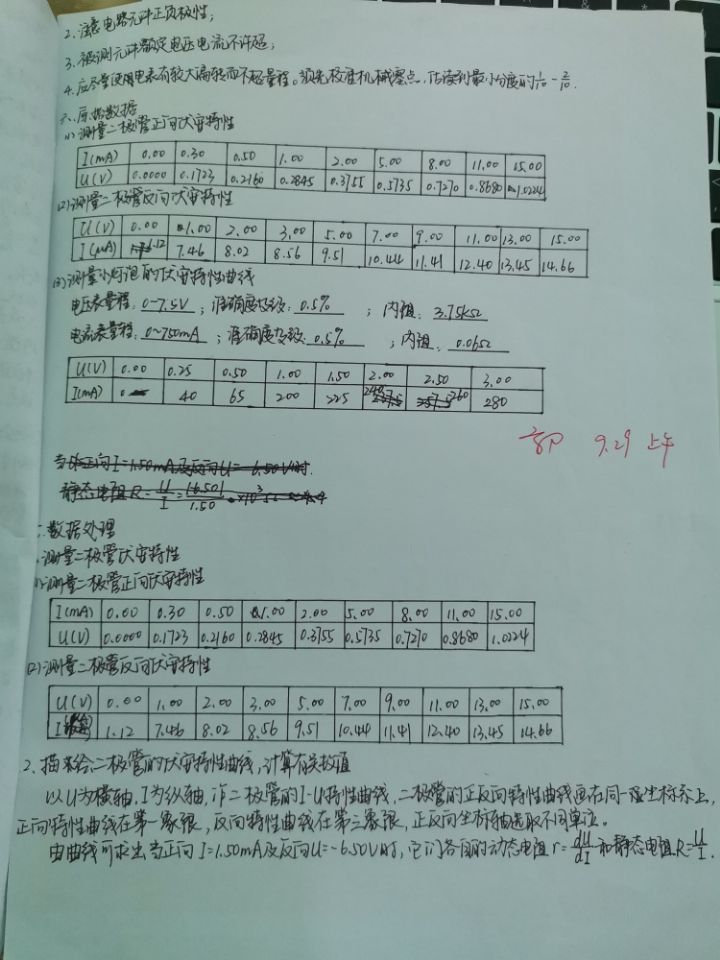 2. 注意电路元件正负极性;
3. 被测元件额定电压电流不许超;
4. 应尽量使用电表有较大偏转而不超量程。须先校准机械零点,估读到最小分度的1/10-2/10.
六、原始数据
(1)测量二极管正向伏安特性
I(mA) 0.00 0.30 0.50 1.00 2.00 5.00 8.00 11.00 15.00
U(V) 0.0000 0.1723 0.2160 0.2845 0.3755 0.5735 0.7270 0.8680 1.0224
(2)测量二极管反向伏安特性
U(V) 0.00 1.00 2.00 3.00 5.00 7.00 9.00 11.00 13.00 15.00
I(μA) 7.46 8.02 8.56 9.51 10.44 11.41 12.40 13.45 14.66
(3)测量小灯泡的伏安特性曲线
电压表量程:0~7.5V;准确度等级:0.5%;内阻:3.75kΩ
电流表量程:0~750mA;准确度等级:0.5%;内阻:0.06Ω
U(V) 0.00 0.25 0.50 1.00 1.50 2.00 2.50 3.00
I(mA) 0 40 65 200 225 260 280
9.29 上午
当正向I=1.50mA及反向U=-6.50V时.
静态电阻R=U/I=|6.50|/1.50
数据处理
测量二极管伏安特性
测量二极管正向伏安特性
I(mA) 0.00 0.30 0.50 1.00 2.00 5.00 8.00 11.00 15.00
U(V) 0.0000 0.1723 0.2160 0.2845 0.3755 0.5735 0.7270 0.8680 1.0224
(2)测量二极管反向伏安特性
U(V) 0.00 1.00 2.00 3.00 5.00 7.00 9.00 11.00 13.00 15.00
I 1.12 7.46 8.02 8.56 9.51 10.44 11.41 12.40 13.45 14.66
2、描绘二极管的伏安特性曲线,计算有关数值
以U为横轴,I为纵轴,作二极管的I-U特性曲线,二极管的正反向特性曲线画在同一坐标系上,
正向特性曲线在第一象限,反向特性曲线在第三象限,正反向坐标轴选取不同单位。
由曲线可求出当正向I=1.50mA及反向U=-6.50V时,它们各自的动态电阻r=dU/dI和静态电阻R=U/I.